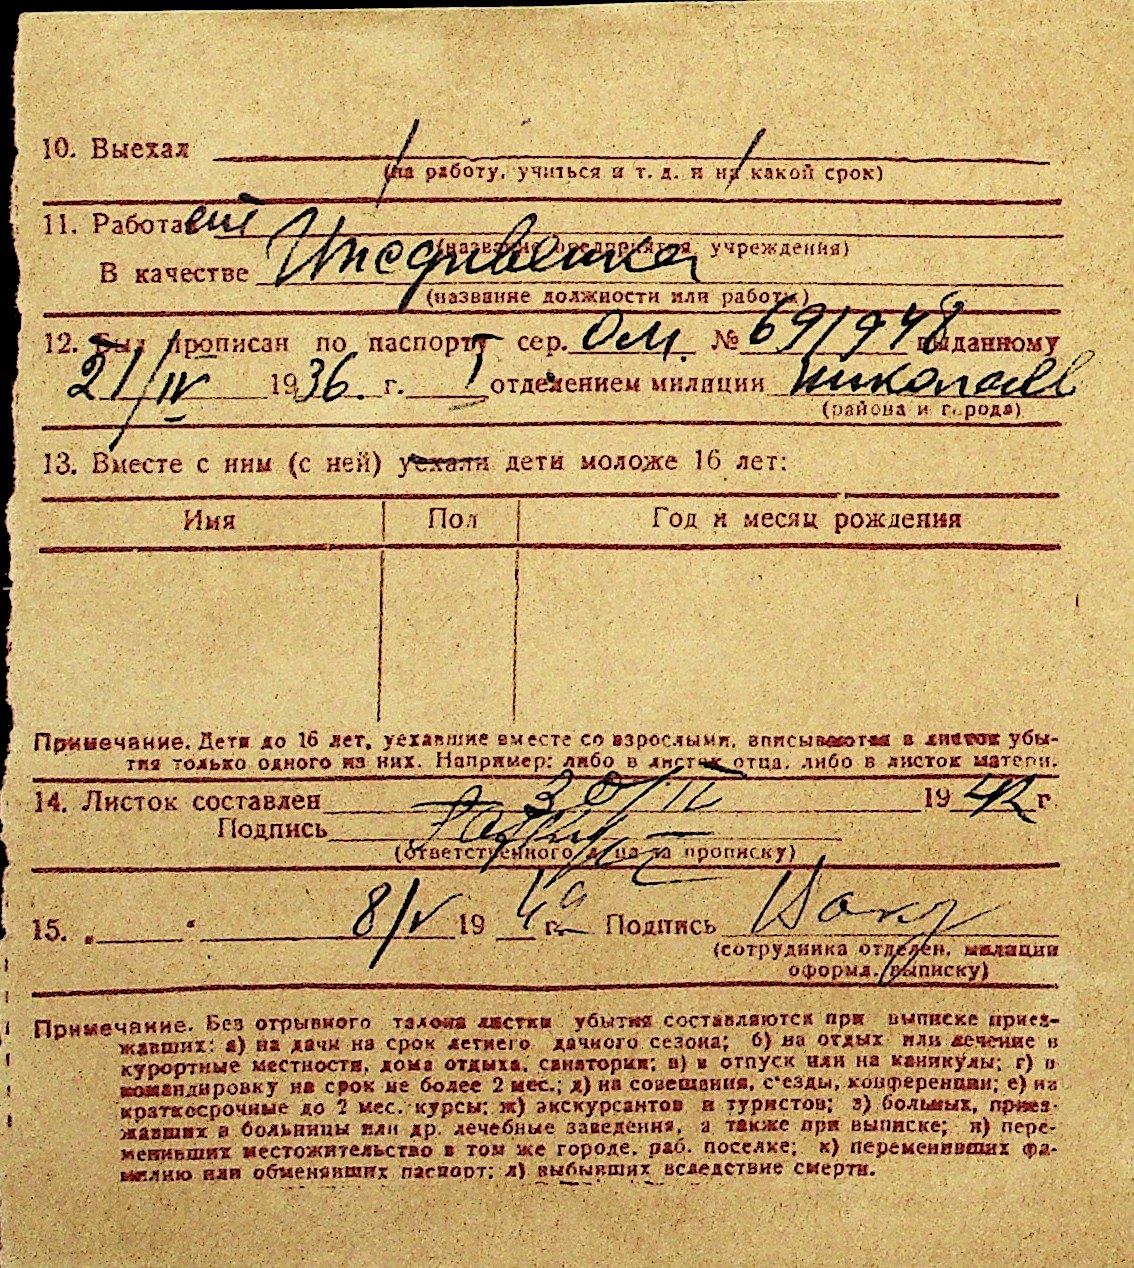 10. Выехал
(на работу, учиться и т. д. и на какой срок)
11. Работает
(название предприятия, учреждения)
В качестве Иждивенка
(название должности или работы)
12. Был прописан по паспорту сер. ОМ. № 691948 выданному
21/IV 1936. г. 5 отделением милиции Николаев
(района и города)
13. Вместе с ним (с ней) уехали дети моложе 16 лет:
Имя Пол Год и месяц рождения
Примечание. Дети до 16 лет, уехавшие вместе со взрослыми, вписываются в листок убы-
тия только одного из них. Например: либо в листок отца, либо в листок матери.
14. Листок составлен 30/IV 1942 г.
Подпись
(ответственного лица за прописку)
15. „ “ 8/V 1942 г. Подпись
(сотрудника отделен. милиции
оформл. выписку)
Примечание. Без отрывного талона листки убытия составляются при выписке приез-
жавших: а) на дачи на срок летнего дачного сезона; б) на отдых или лечение в
курортные местности, дома отдыха, санатории; в) в отпуск или на каникулы; г) в
командировку на срок не более 2 мес.; д) на совещания, с'езды, конференции; е) на
краткосрочные до 2 мес. курсы; ж) экскурсантов и туристов; з) больных, приез-
жавших в больницы или др. лечебные заведения, а также при выписке; и) пере-
менивших местожительство в том же городе, раб. поселке; к) переменивших фа-
милию или обменявших паспорт; л) выбывших вследствие смерти.